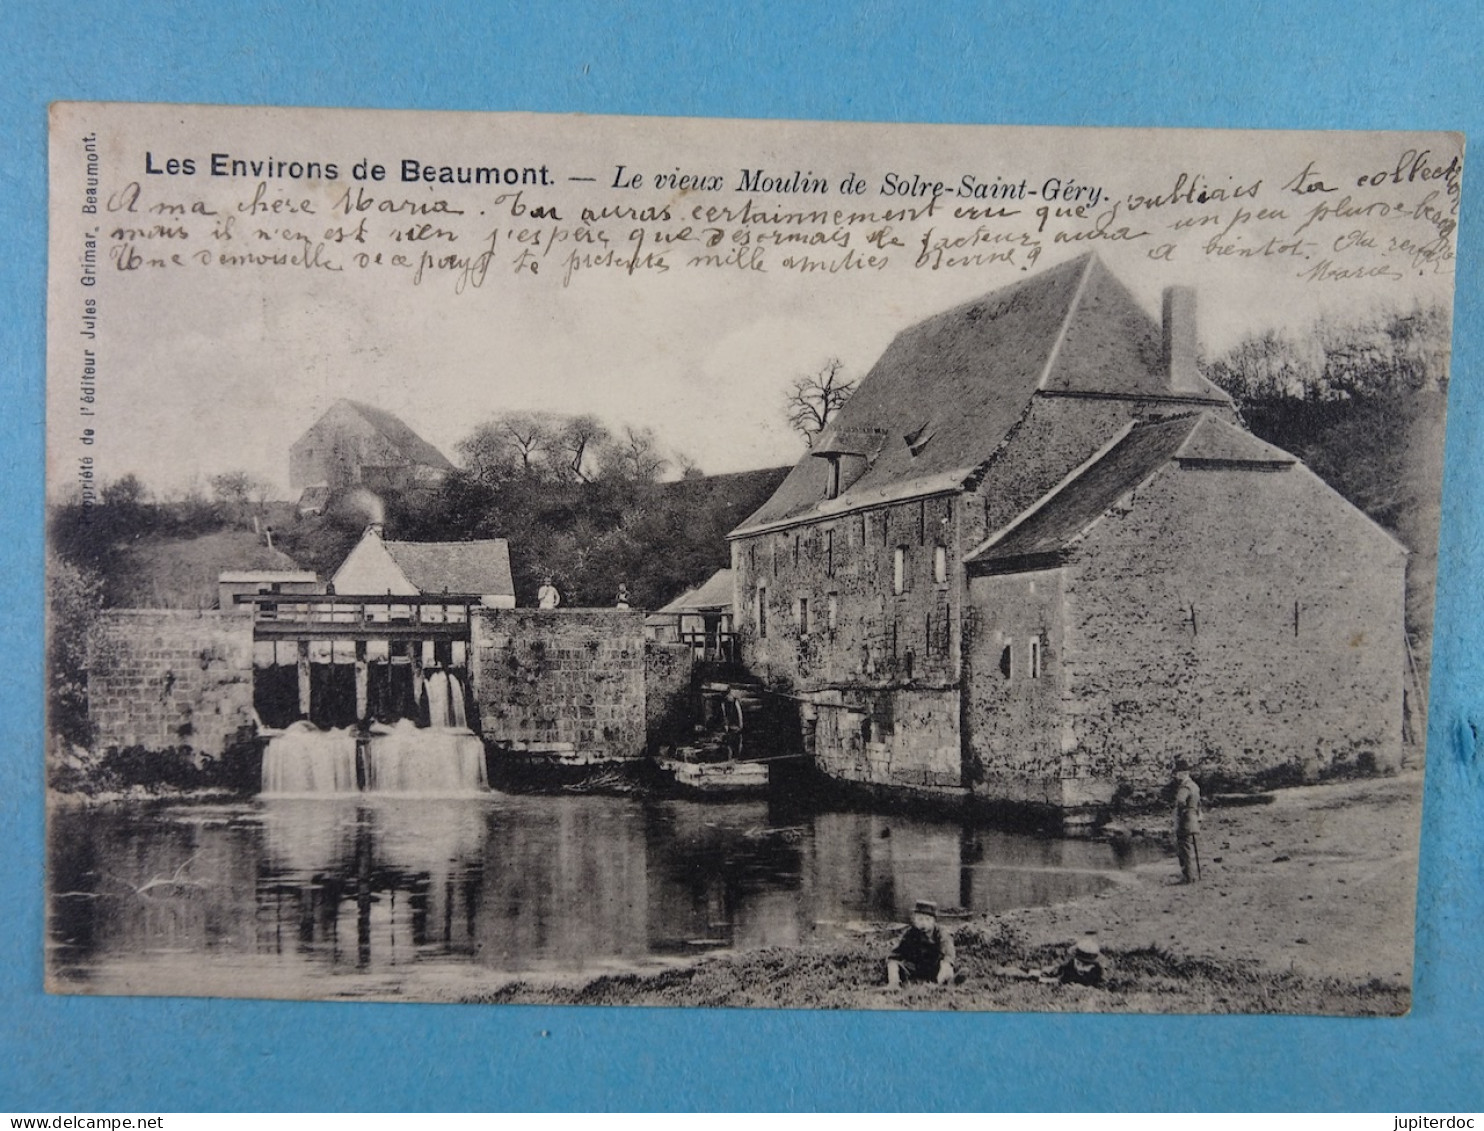 Les Environs de Beaumont. — Le vieux Moulin de Solre-Saint-Géry.
A ma chère Maria. Tu auras certainnement cru que j'oubliais ta collection
mais il n'en est rien j'espère que désormais le facteur aura un peu plus de besogne
Une demoiselle de ce pays te présente mille amitiés Devine ? à bientôt. Au revoir
Marie
opriété de l'éditeur Jules Grimar, Beaumont.
jupiterdoc